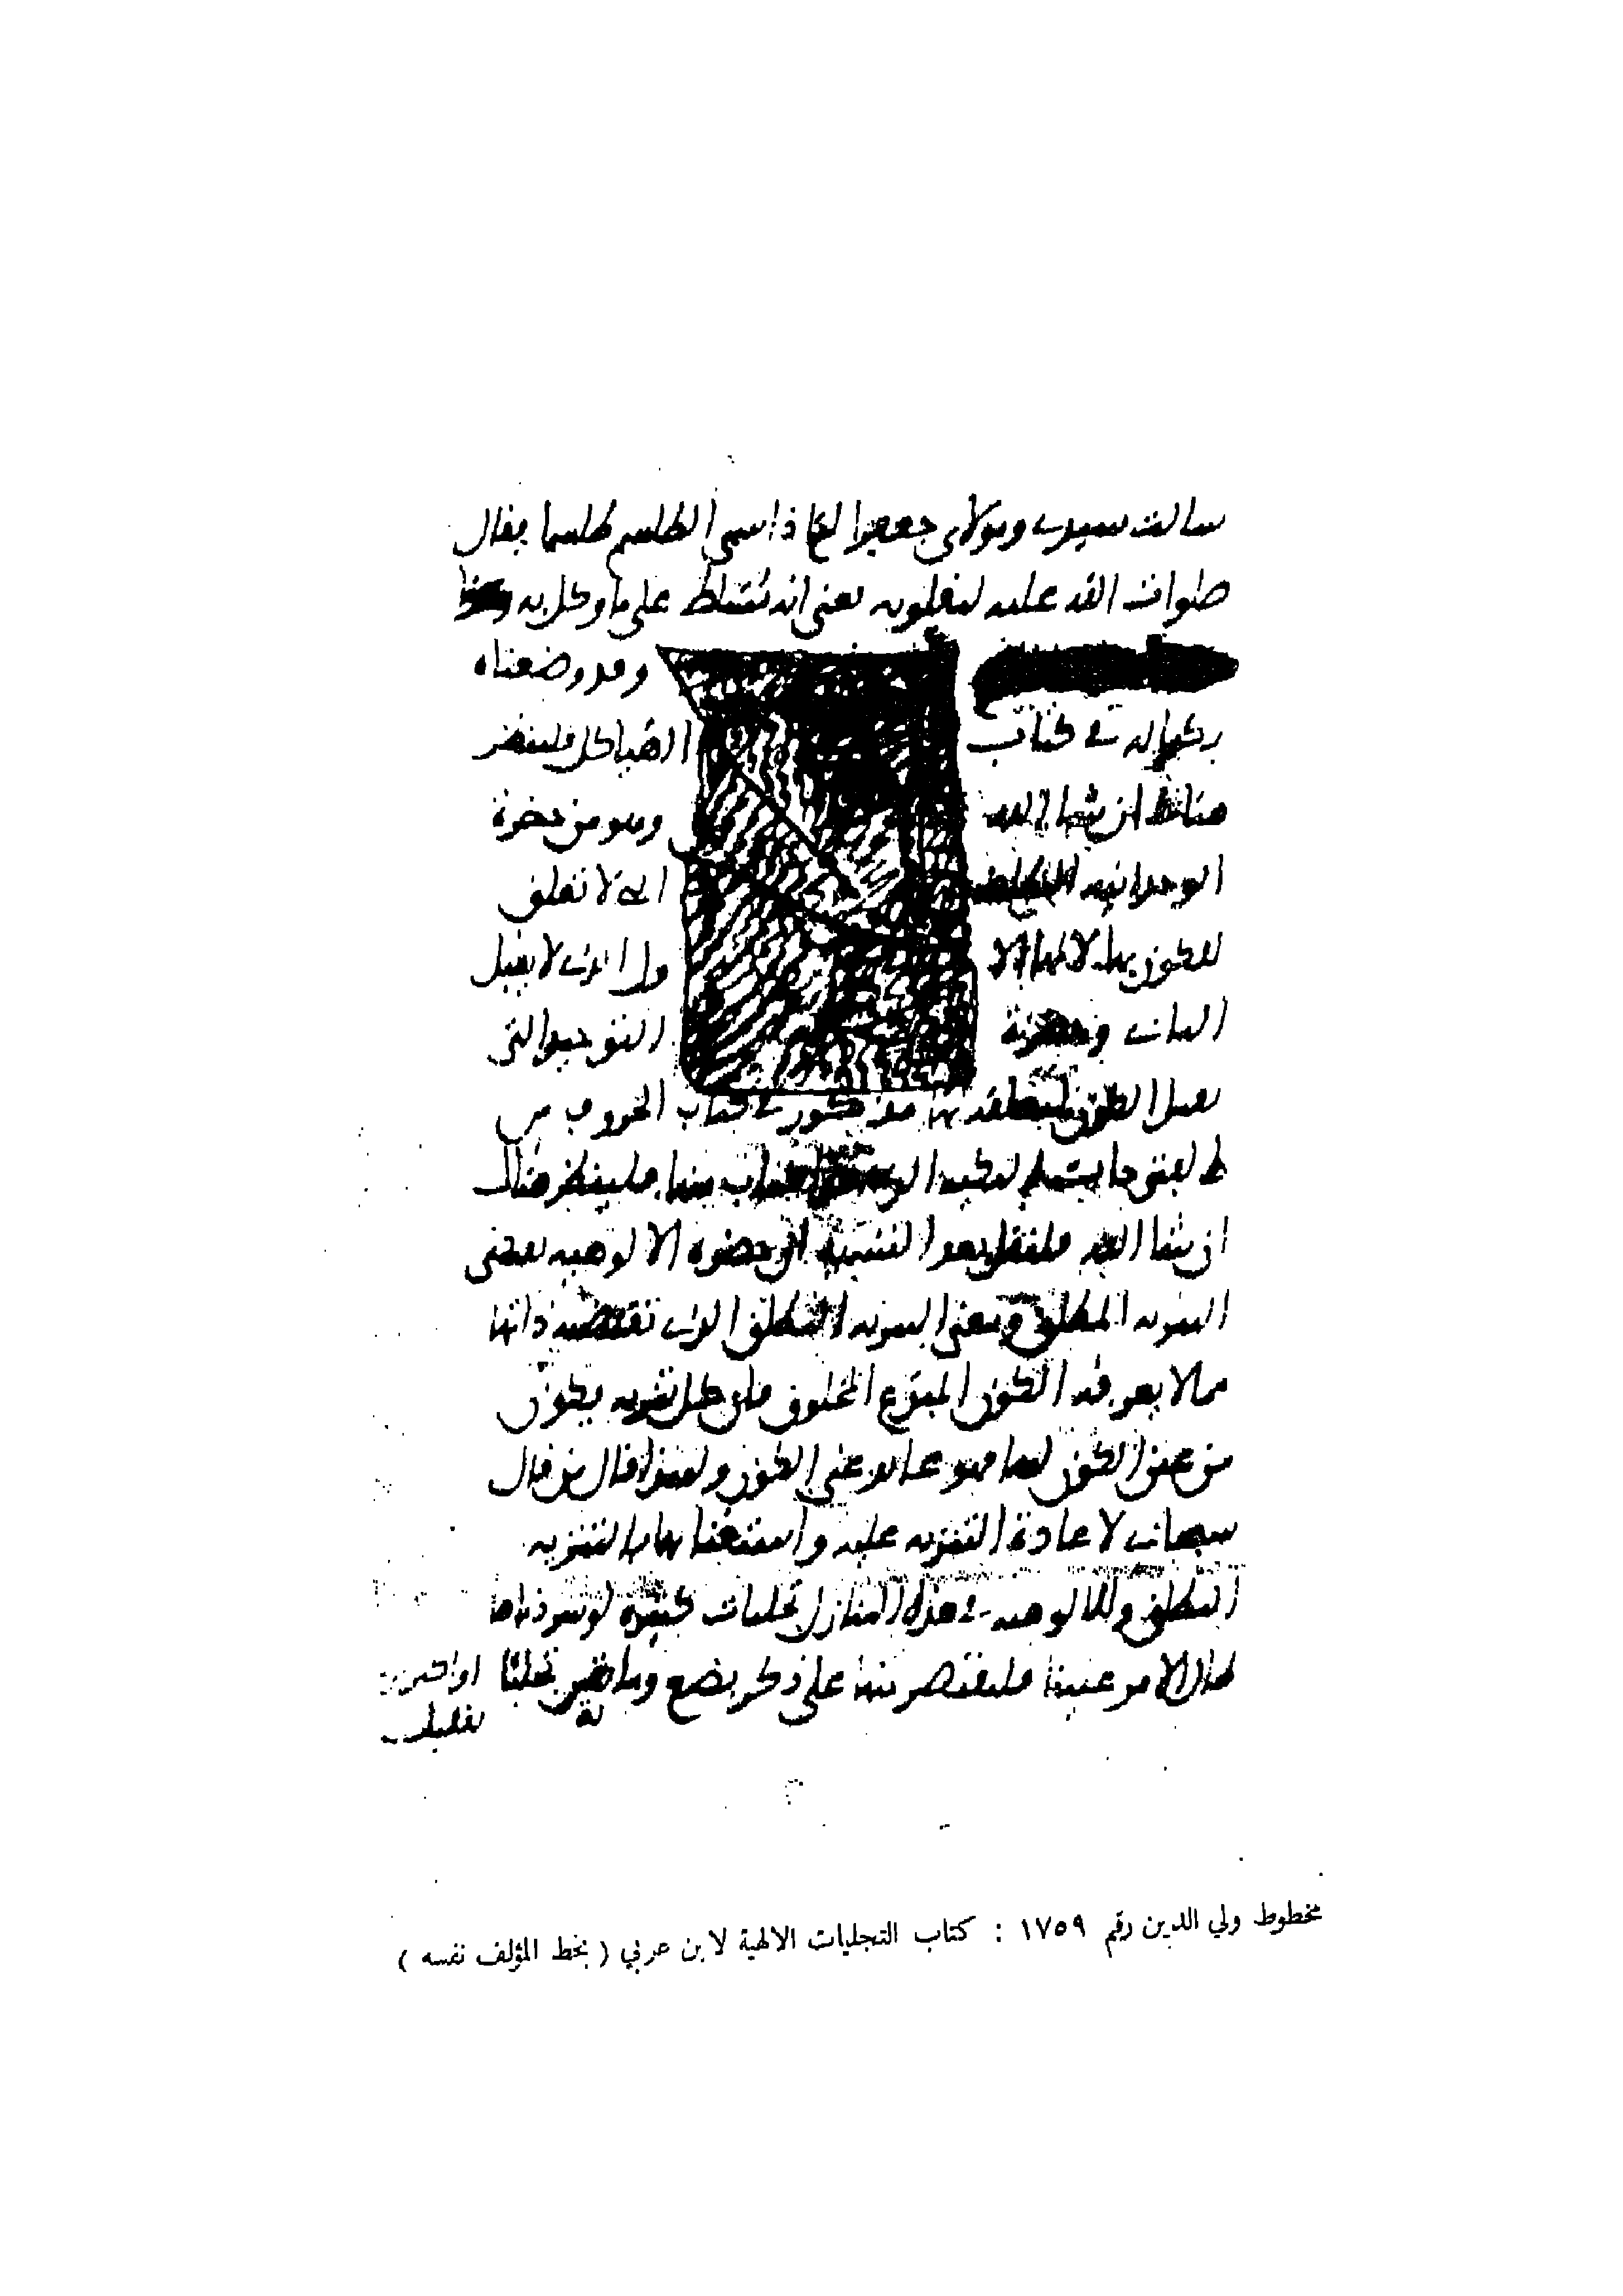 سالت سيدي ومولاي جعفرا لما ذا سمي الطلسم طلسما فقال
صلوات الله عليه لمقلوبه يعني انه مسلط على ما وكل به
وقد وضعناه
بكماله في كتاب الهياكل فلينظر
هناك ان شا الله وهو من حضرة
الوحدانية التي لا تعلق
للكون بها لانها الاول الذي لا يقبل
الثاني وحضرة التوحيد التي
تقبل الكون لتعلقه بها مذكور في كتاب الحروف من
فلينظر هناك
ان شا الله فلنقل بعد التسمية ان حضرة الالوهية تقتضي
التنزيه المطلق ومعنى التنزيه المطلق الذي تقتضيه ذاتها
مما لا يعرفه الكون المبدع المخلوق فان كل تنزيه يكون
من عين الكون لها فهو عائد على الكون ولهذا قال من قال
سبحاني لاعادة التنزيه عليه واستغنائها بالتنزيه
المطلق وللالوهية في هذه المنازل تجليات كثيرة لو سردناها
لطال الامر علينا فلنقتصر منها على ذكر بضع وماية تجليا او اكثر من ذلك
بقليل
مخطوط ولي الدين رقم ١٧٥٩ : كتاب التجليات الالهية لابن عربي ( بخط المؤلف نفسه )